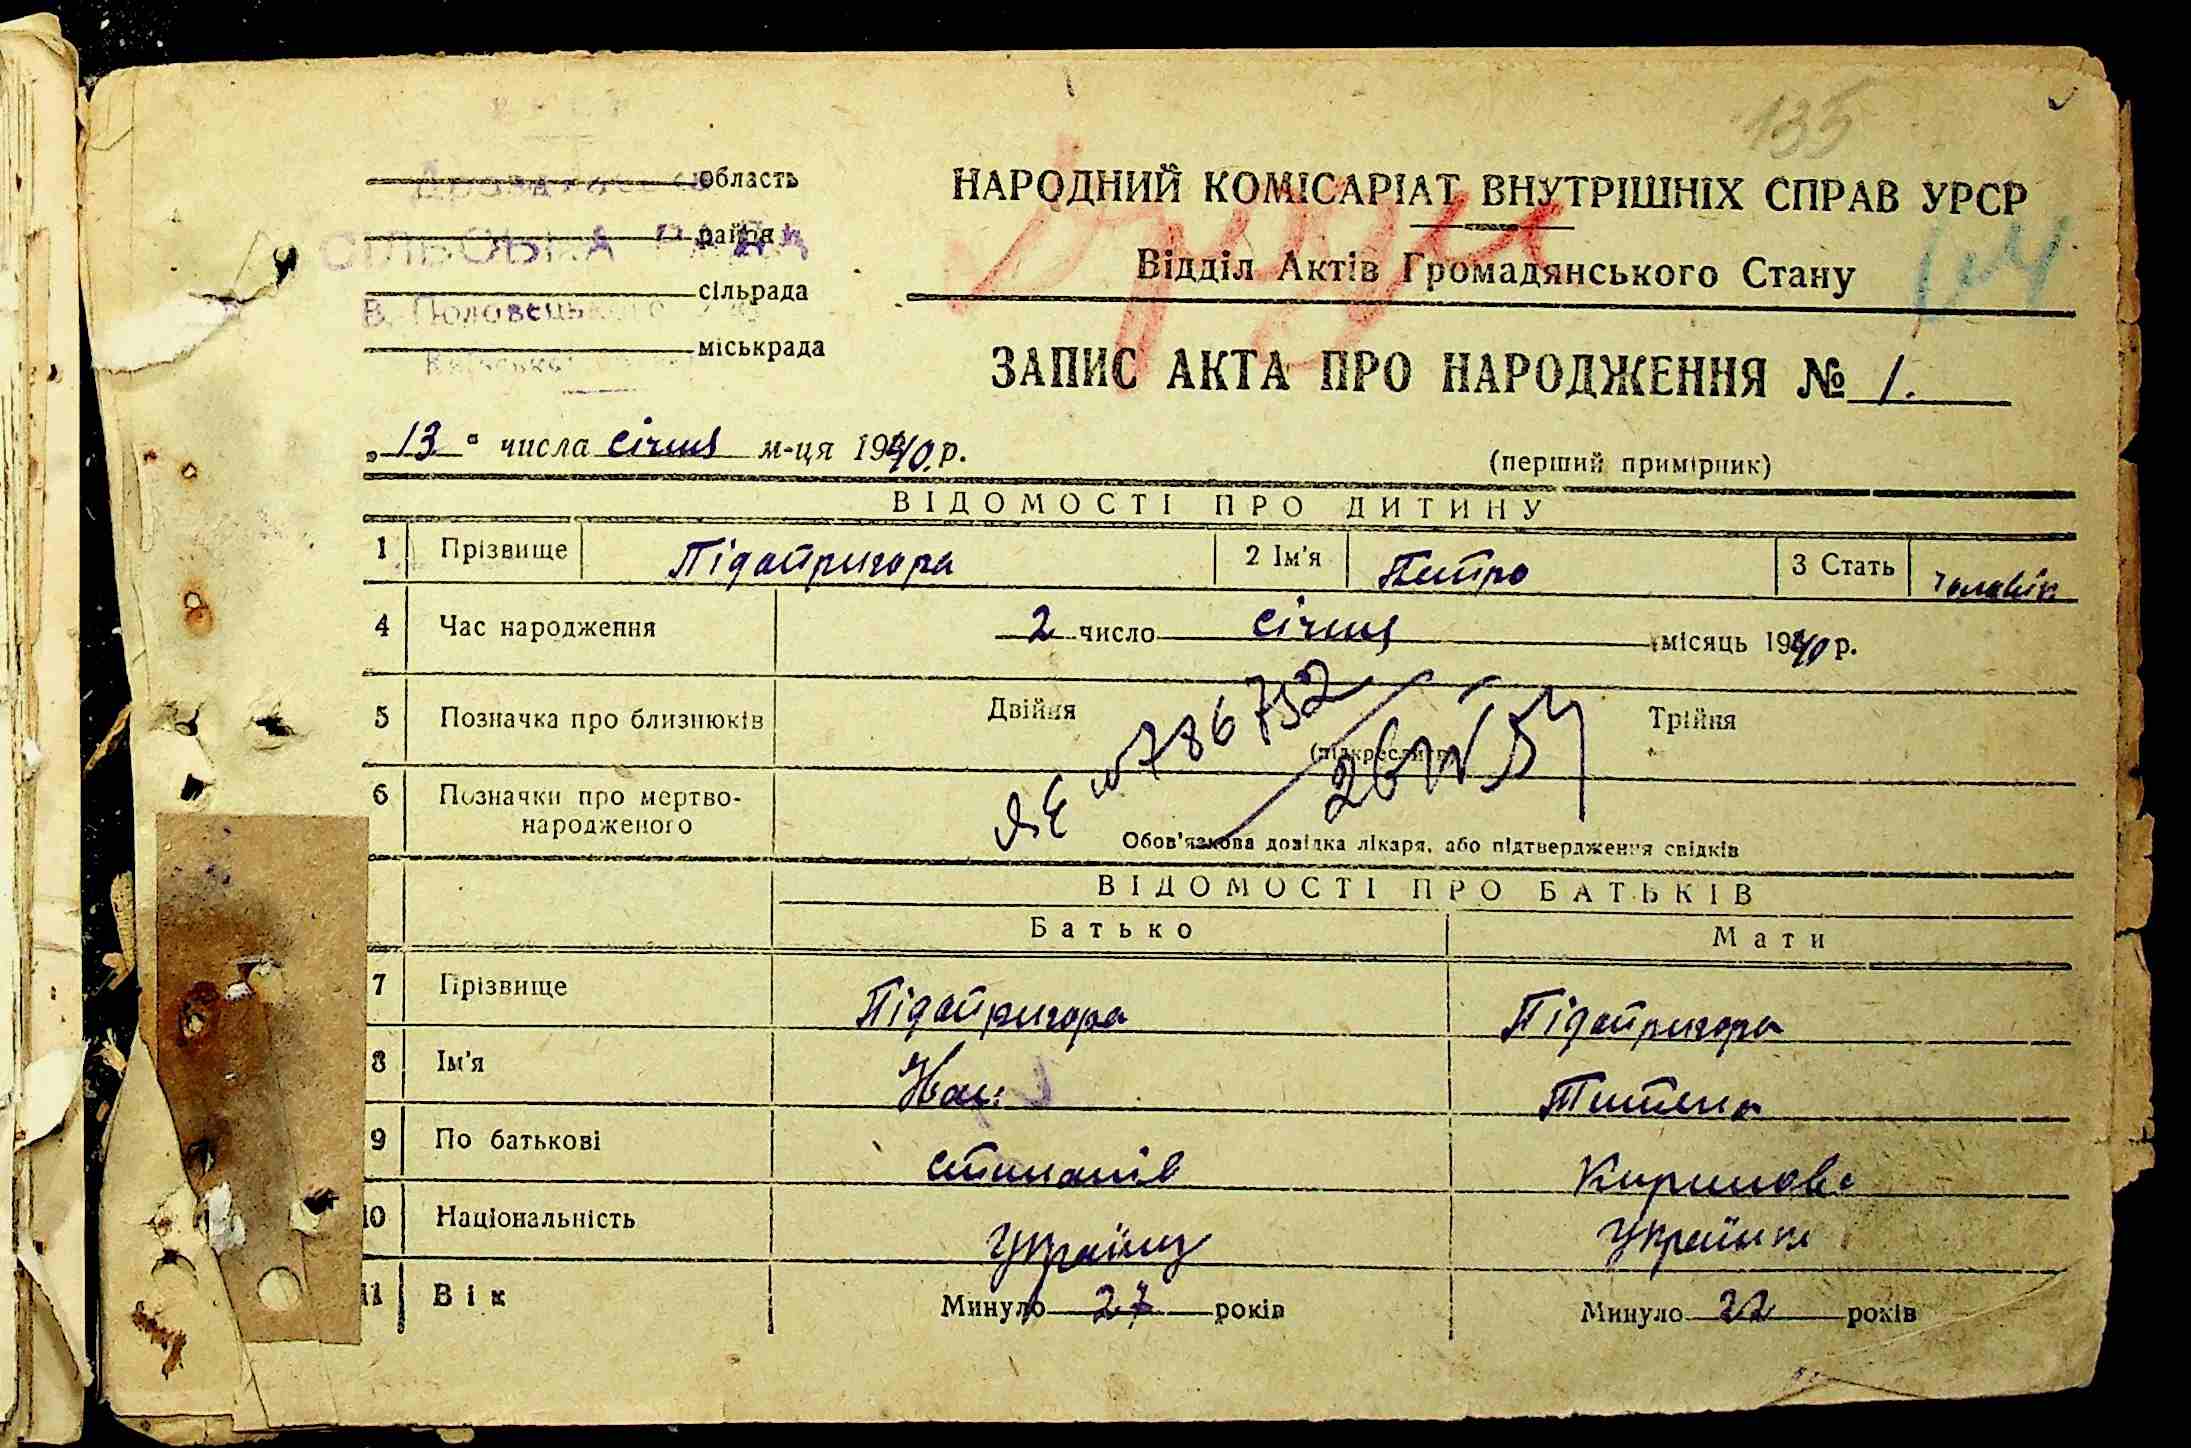 135
область
район
СІЛЬСЬКА РАДА
сільрада
В. Половецьк
міськрада
НАРОДНИЙ КОМІСАРІАТ ВНУТРІШНІХ СПРАВ УРСР
Відділ Актів Громадянського Стану
ЗАПИС АКТА ПРО НАРОДЖЕННЯ № 1.
„13“ числа січня м-ця 1940 р.
(перший примірник)
ВІДОМОСТІ ПРО ДИТИНУ
1 Прізвище Підопригора 2 Ім'я Петро 3 Стать чоловіч
4 Час народження 2 число січня місяць 1940 р.
5 Позначка про близнюків Двійня Трійня
(підкреслити)
786732
6 Позначки про мертво-
народженого
Обов'язкова довідка лікаря, або підтвердження свідків
ВІДОМОСТІ ПРО БАТЬКІВ
Батько Мати
7 Прізвище Підопригора Підопригора
8 Ім'я Іван Тетяна
9 По батькові степанів Кирилова
10 Національність Українц Українка
11 Вік Минуло 27 років Минуло 22 років